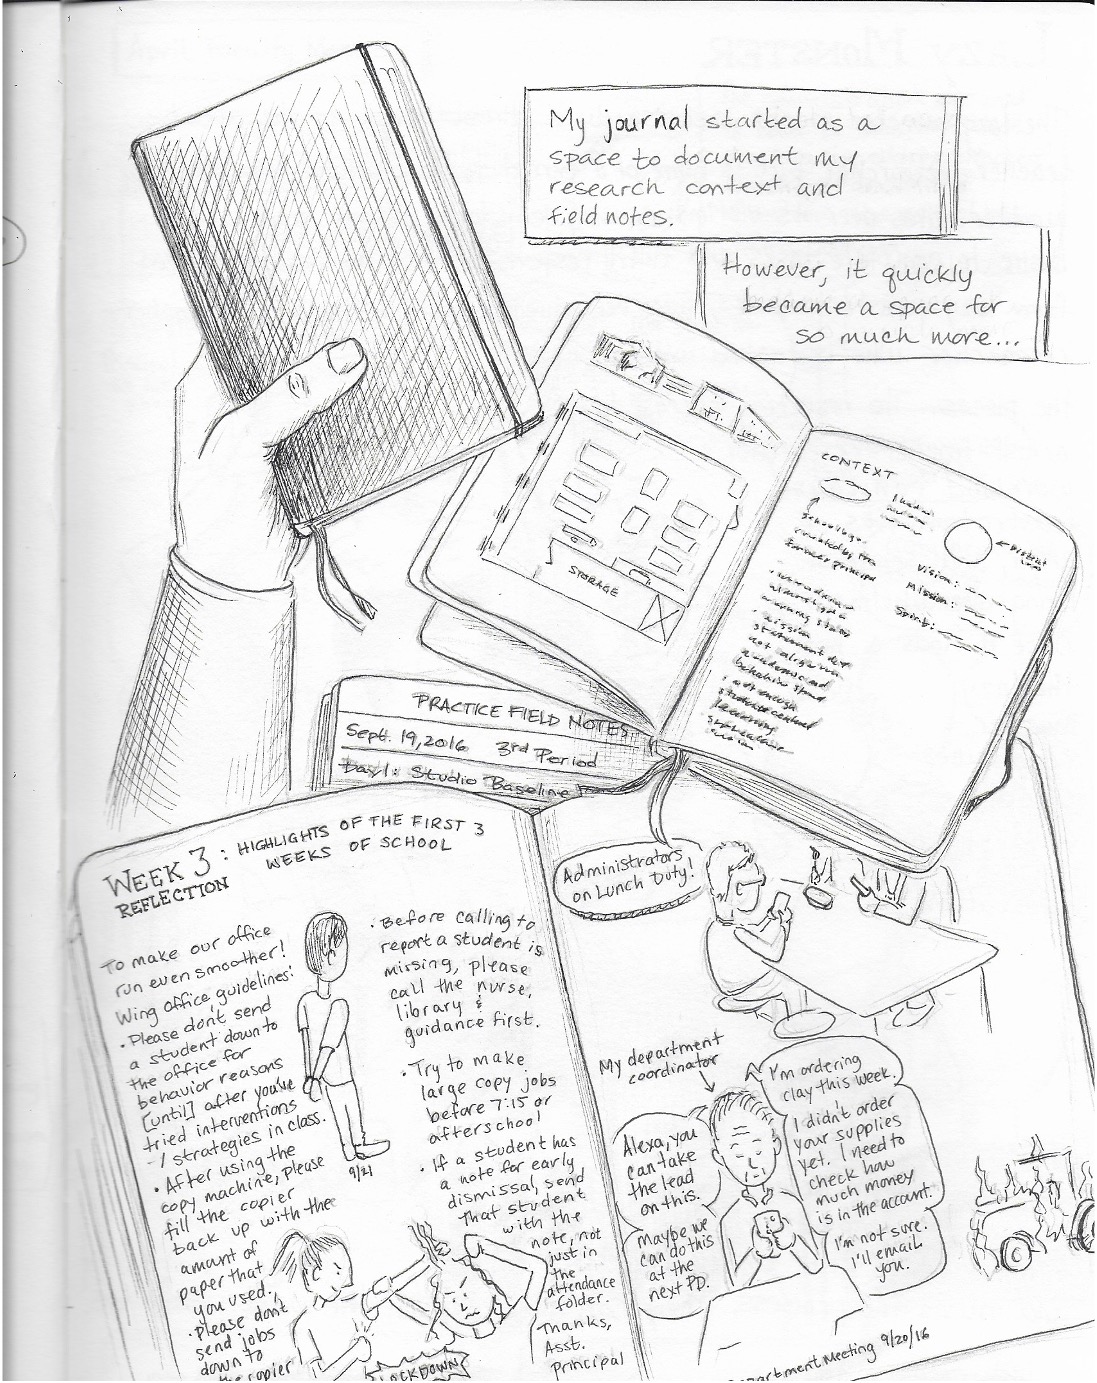 My journal started as a
space to document my
research context and
field notes.
However, it quickly
became a space for
so much more...
STORAGE
CONTEXT
created by the
former principal
District
Vision:
Mission:
Spirit:
mission
statement
not
academic and
student centred
learning
PRACTICE FIELD NOTES
Sept. 19, 2016 3rd Period
Day 1: Studio Baseline
WEEK 3 : HIGHLIGHTS OF THE FIRST 3
WEEKS OF SCHOOL
REFLECTION
To make our office
run even smoother!
Wing office guidelines:
• Please don't send
a student down to
the office for
behavior reasons
[until] after you've
tried interventions
/ strategies in class.
• After using the
copy machine, please
fill the copier
back up with the
amount of
paper that
you used.
• Please don't
send jobs
down to
the copier
9/21
• Before calling to
report a student is
missing, please
call the nurse,
library &
guidance first.
• Try to make
large copy jobs
before 7:15 or
afterschool
• If a student has
a note for early
dismissal, send
that student
with the
note, not
just in
the
attendance
folder.
Thanks,
Asst.
Principal
LOCKDOWN
Administrators
on Lunch Duty!
My department
coordinator
I'm ordering
clay this week.
I didn't order
your supplies
yet. I need to
check how
much money
is in the account.
I'm not sure.
I'll email
you.
Alexa, you
can take
the lead
on this.
Maybe we
can do this
at the
next PD.
Department Meeting 9/20/16